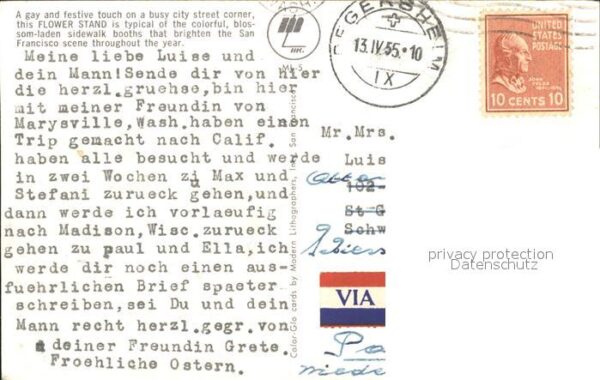 A gay and festive touch on a busy city street corner,
this FLOWER STAND is typical of the colorful, blos-
som-laden sidewalk booths that brighten the San
Francisco scene throughout the year.
Meine liebe Luise und
dein Mann!Sende dir von hier
die herzl.gruehse,bin hier
mit meiner Freundin von
Marysville,Wash.haben einen
Trip gemacht nach Calif.
haben alle besucht und werde
in zwei Wochen zu Max und
Stefani zurueck gehen,und
dann werde ich vorlaeufig
nach Madison,Wisc.zurueck
gehen zu paul und Ella,ich
werde dir noch einen aus-
fuehrlichen Brief spaeter
schreiben,sei Du und dein
Mann recht herzl.gegr.von
deiner Freundin Grete.
Froehliche Ostern.
Color-Glo cards by Modern Lithographers, Inc., San Francisco
INC.
ML-5
REGENSHEIM
13.IV.55.-10
IX
UNITED
STATES
POSTAGE
JOHN TYLER
10 CENTS 10
Mr.Mrs.
Luis
102-
St G
Schw
VIA
Pa
privacy protection
Datenschutz